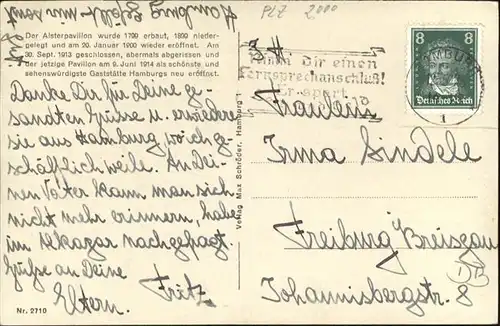 Hamburg
PLZ 2000
Der Alsterpavillon wurde 1799 erbaut, 1890 niederge-
gelegt und am 20. Januar 1900 wieder eröffnet. Am
30. Sept. 1913 geschlossen, abermals abgerissen und
der jetzige Pavillon am 9. Juni 1914 als schönste und
sehenswürdigste Gaststätte Hamburgs neu eröffnet.
Danke Dir für Deine ge-
sandten Grüsse u. erwiedere
sie aus Hamburg wo ich ge-
schäftlich weile. An Dei-
nen Vater kann man sich
nicht mehr erinnern, habe
im Alkazar nachgefragt.
Grüße an Deine
Eltern. Fritz
Nr. 2710
Verlag Max Schröder, Hamburg 1
Dir einen
Fernsprechanschluß!
8 8
Deutsches Reich
1
Fräulein
Irma Sindele
Freiburg Breisgau
Johannisbergstr. 8